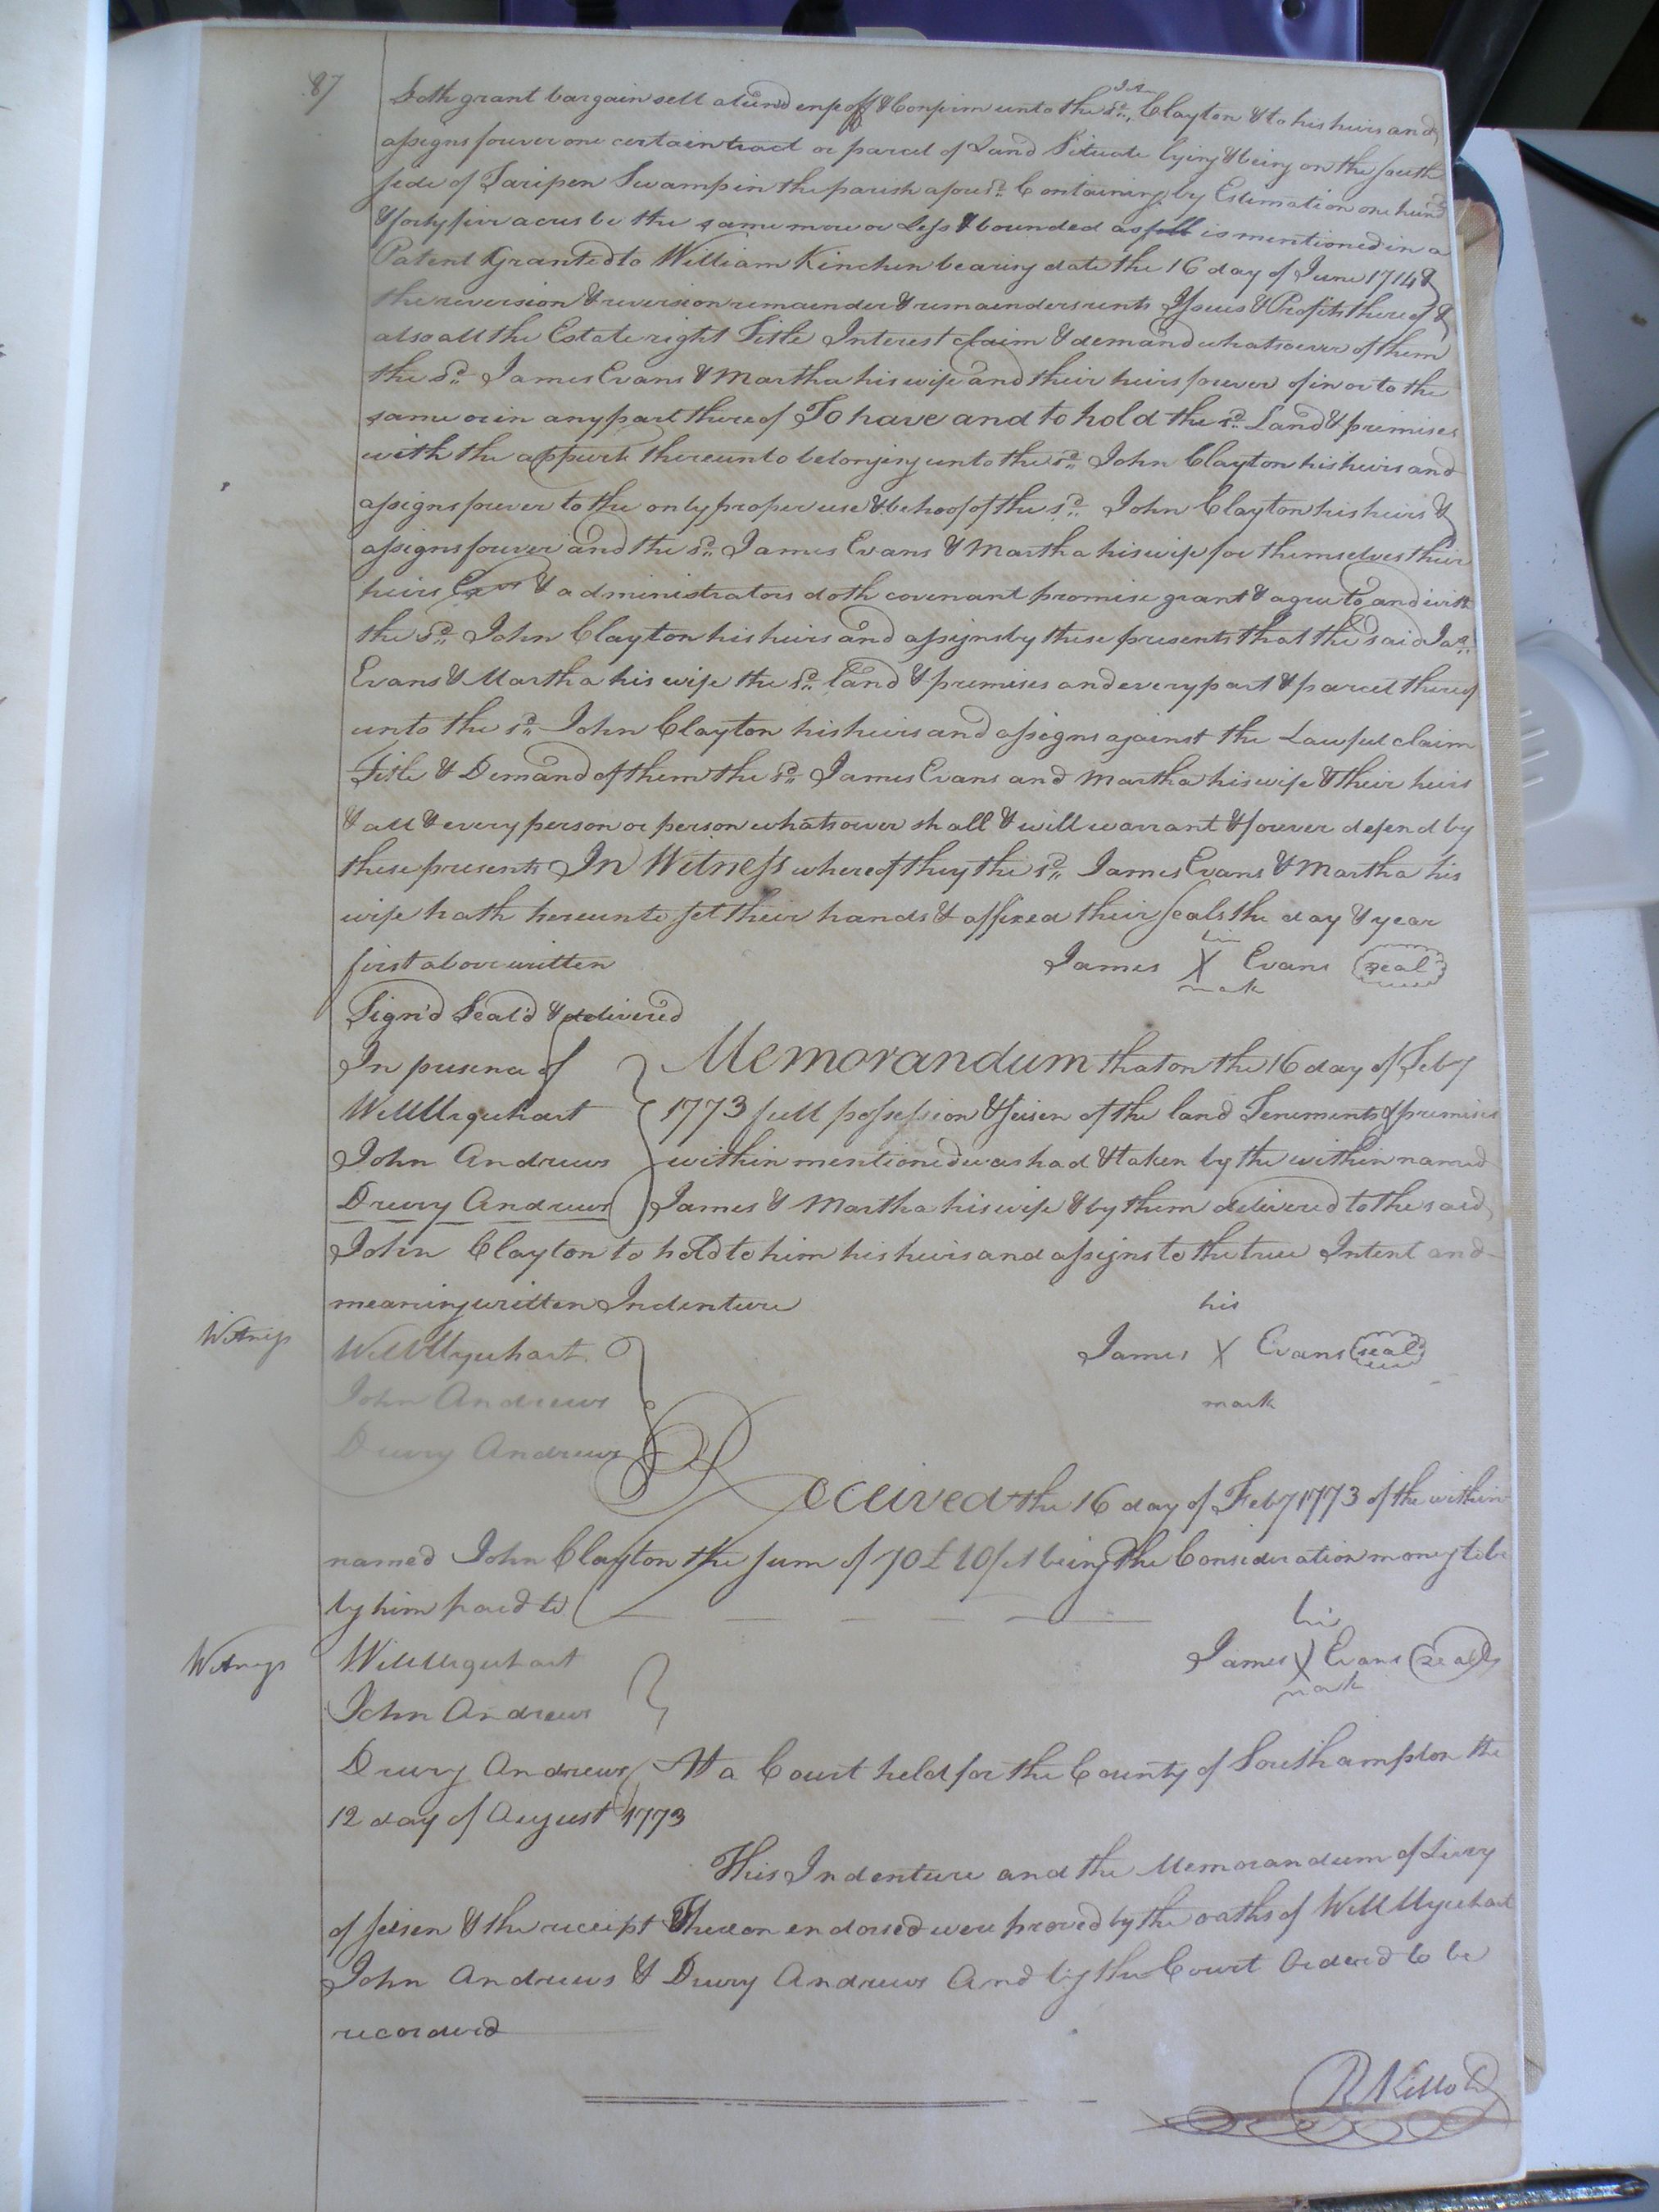 87
doth grant bargain sell alien enfeoff & Confirm unto the sd. Jno. Clayton & to his heirs and
assigns forever one certain tract or parcel of Land Situate lying & being on the South
side of Taripen Swamp in the parish aforesd. Containing by Estimation one hund
& forty five acres be the same more or Less & bounded as is mentioned in a
Patent Granted to William Kinchen bearing date the 16 day of June 1714 &
the reversion & reversion remainder & remainders rents Issues & Profits thereof &
also all the Estate right Title Interest claim & demand whatsoever of them
the sd. James Evans & Martha his wife and their heirs forever of in or to the
same or in any part thereof To have and to hold the sd. Land & premises
with the appurts thereunto belonging unto the sd. John Clayton his heirs and
assigns forever to the only proper use & behoof of the sd. John Clayton his heirs &
assigns forever and the sd. James Evans & Martha his wife for themselves their
heirs Exors & administrators doth covenant promise grant & agree to and with
the sd. John Clayton his heirs and assigns by these presents that the said Jas.
Evans & Martha his wife the sd. land & premises and every part & parcel thereof
unto the sd. John Clayton his heirs and assigns against the Lawful claim
Title & Demand of them the sd. James Evans and Martha his wife & their heirs
& all & every person or person whatsoever shall & will warrant & forever defend by
these presents In Witness whereof they the sd. James Evans & Martha his
wife hath hereunto set their hands & affixed their seals the day & year
first above written James his X mark Evans seal
Sign'd Seal'd & delivered
In presence of Memorandum that on the 16 day of Feby
Will Urquhart 1773 full possession & seisen of the land Tenements & premises
John Andrews within mentioned was had & taken by the within named
Drury Andrews James & Martha his wife & by them delivered to the said
John Clayton to hold to him his heirs and assigns to the true Intent and
meaning written Indenture his
Witness Will Urquhart James X Evans seal
John Andrews mark
Drury Andrews
Received the 16 day of Feby 1773 of the within
named John Clayton the sum of 70£ 10/ being the Consideration money to be
by him paid to his
Witness Will Urquhart James X Evans seal
John Andrews mark
Drury Andrews At a Court held for the County of Southampton the
12 day of August 1773
This Indenture and the Memorandum of Livry
of seisen & the receipt Thereon endorsed were proved by the oaths of Will Urquhart
John Andrews & Drury Andrews And by the Court Ordered to be
recorded